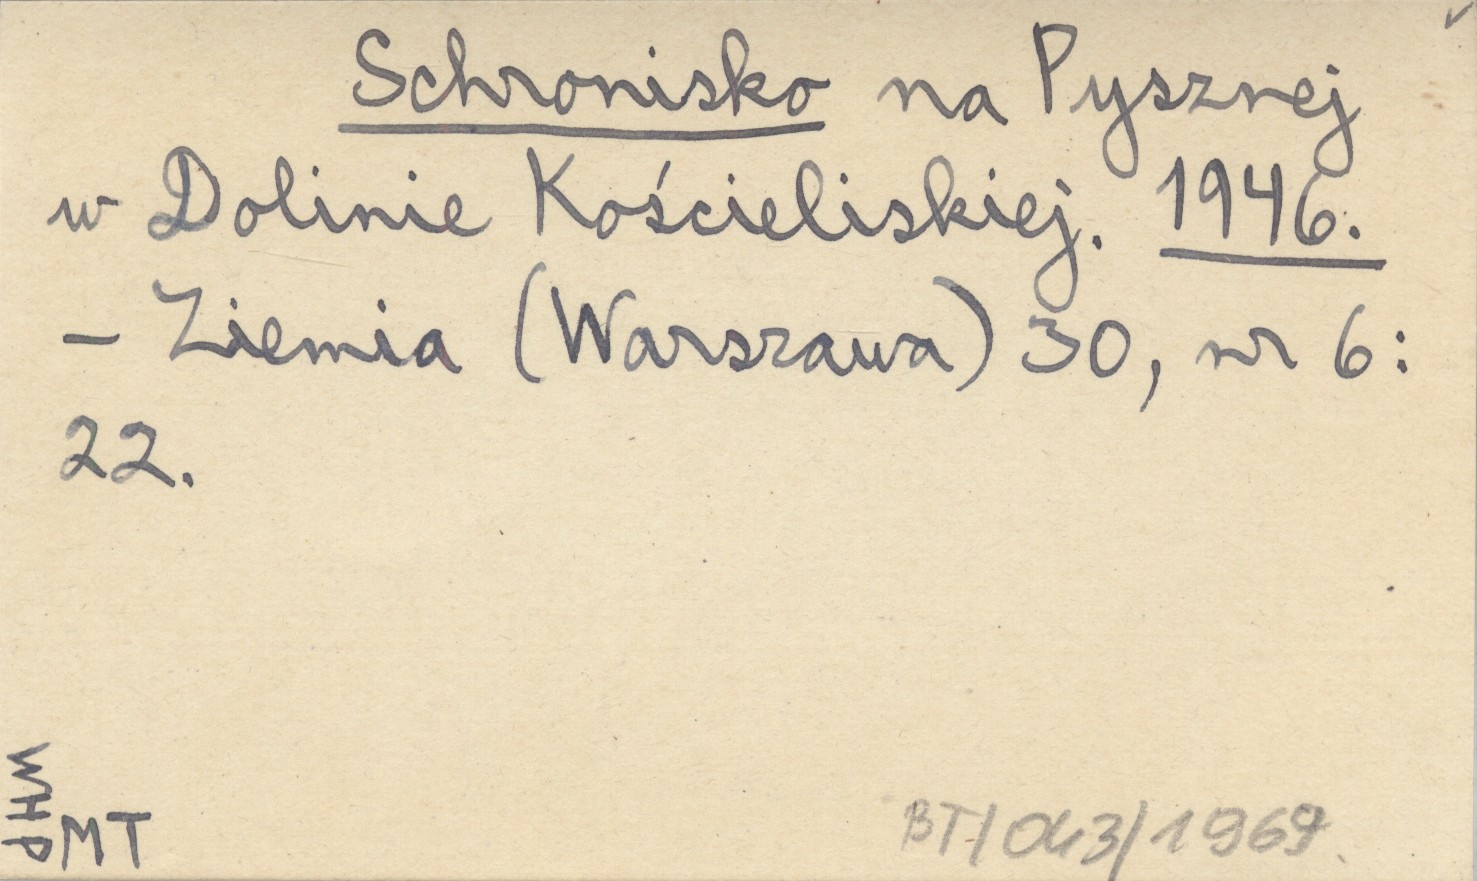 Schronisko na Pysznej
w Dolinie Kościeliskiej. 1946.
– Ziemia (Warszawa) 30, nr 6:
22.
WHP
MT
BT/043/1969.